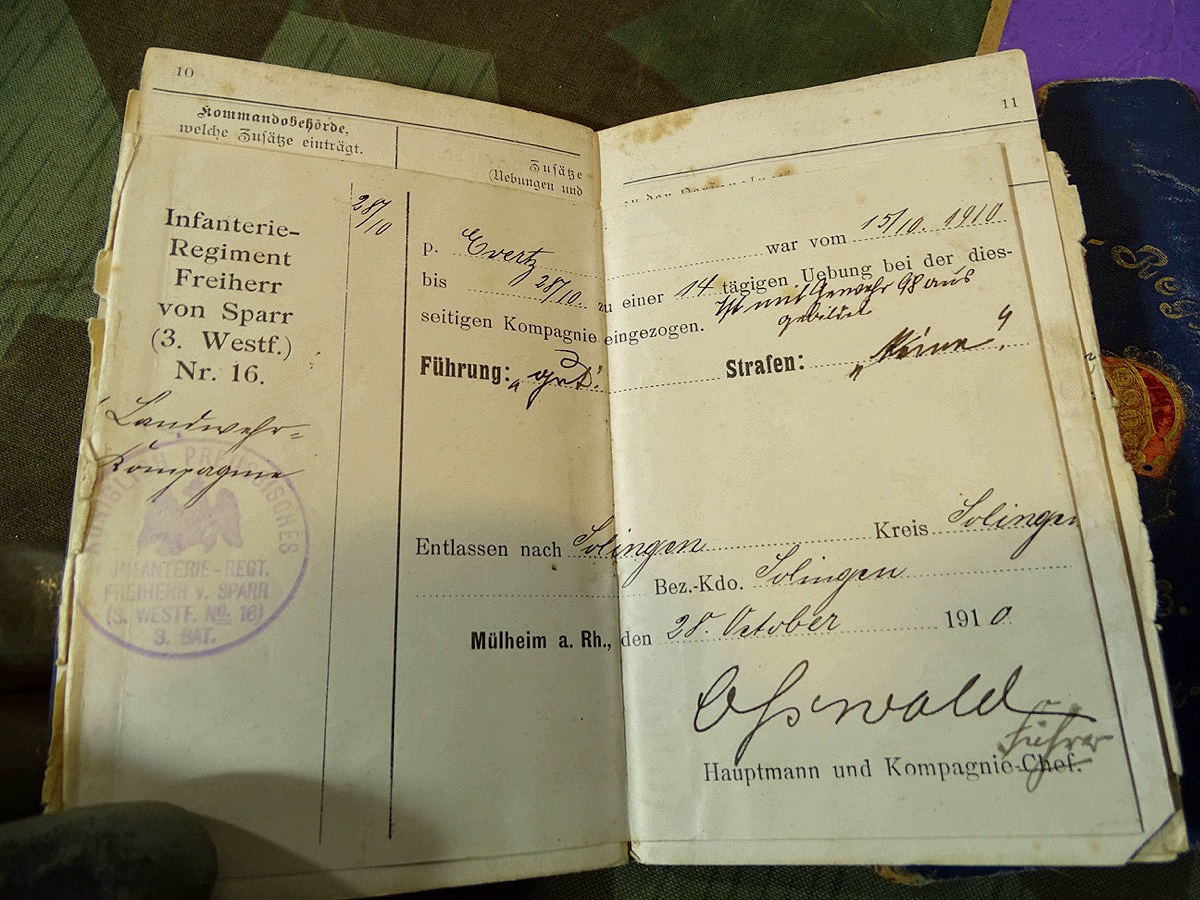 10
Kommandobehörde,
welche Zusätze einträgt.
Zusätze
(Uebungen und
Infanterie-
Regiment
Freiherr
von Sparr
(3. Westf.)
Nr. 16.
Landwehr-
Kompagnie
KÖNIGLICH PREUSSISCHES
INFANTERIE-REGT.
FREIHERR v. SPARR
(3. WESTF. No. 16)
3. BAT.
28/10
11
p. Evertz war vom 15/10. 1910
bis 28/10. zu einer 14 tägigen Uebung bei der dies-
seitigen Kompagnie eingezogen. Ist mit Gewehr 98 aus
gebildet
Führung: „gut“. Strafen: „Keine“.
Entlassen nach Solingen Kreis Solingen
Bez.-Kdo. Solingen
Mülheim a. Rh., den 28. October 1910.
Oßwald
Führer
Hauptmann und Kompagnie-Chef.